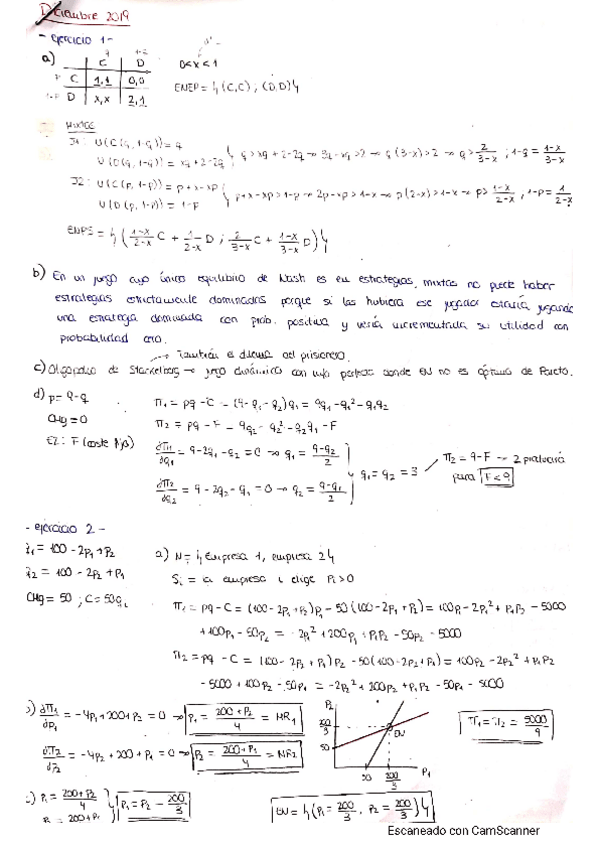 Diciembre 2019
- ejercicio 1 -
a)
C D
C 1,1 0,0
D x,x 2,1
0<x<1
ENEP = {(C,C) ; (D,D)}
J1: U(C(q, 1-q)) = q
U(D(q, 1-q)) = xq + 2-2q
q > xq + 2-2q → 3q - xq > 2 → q(3-x) > 2 → q > 2/(3-x) ; 1-q = (1-x)/(3-x)
J2: U(C(p, 1-p)) = p + x - xp
U(D(p, 1-p)) = 1-p
p + x - xp > 1-p → 2p - xp > 1-x → p(2-x) > 1-x → p > (1-x)/(2-x) , 1-p = 1/(2-x)
{( (1-x)/(2-x) C + 1/(2-x) D ; 2/(3-x) C + (1-x)/(3-x) D )}
b) En un juego cuyo único equilibrio de Nash es en estrategias mixtas no puede haber
estrategias estrictamente dominadas porque si las hubiera ese jugador estaría jugando
una estrategia dominada con prob. positiva y vería incrementada su utilidad con
probabilidad cero.
→ También el dilema del prisionero.
c) Oligopolio de Stackelberg → juego dinámico con info perfecta donde EN no es óptimo de Pareto.
d) p = 9-q
CMg = 0
E2: F (coste fijo)
π1 = pq - C = (9 - q1 - q2)q1 = 9q1 - q1² - q1q2
π2 = pq - F = 9q2 - q2² - q2q1 - F
∂π1/∂q1 = 9 - 2q1 - q2 = 0 → q1 = (9-q2)/2
∂π2/∂q2 = 9 - 2q2 - q1 = 0 → q2 = (9-q1)/2
q1 = q2 = 3
π2 = 9-F → 2 producirá
para F<9
- ejercicio 2 -
q1 = 100 - 2p1 + p2
q2 = 100 - 2p2 + p1
CMg = 50 ; C = 50qi
a) N = {empresa 1, empresa 2}
Si = la empresa i elige Pi > 0
π1 = pq - C = (100 - 2p1 + p2)p1 - 50(100 - 2p1 + p2) = 100p1 - 2p1² + p1p2 - 5000
+ 100p1 - 50p2 = -2p1² + 200p1 + p1p2 - 50p2 - 5000
π2 = pq - C = (100 - 2p2 + p1)p2 - 50(100 - 2p2 + p1) = 100p2 - 2p2² + p1p2
- 5000 + 100p2 - 50p1 = -2p2² + 200p2 + p1p2 - 50p1 - 5000
b) ∂π1/∂p1 = -4p1 + 200 + p2 = 0 → p1 = (200+p2)/4 = MR1
∂π2/∂p2 = -4p2 + 200 + p1 = 0 → p2 = (200+p1)/4 = MR2
P2
200/3
50
EN
50 200/3 P1
π1 = π2 = 5000/9
c) p1 = (200+p2)/4
p1 = p2 = 200/3
EN = {(p1 = 200/3, p2 = 200/3)}
Escaneado con CamScanner